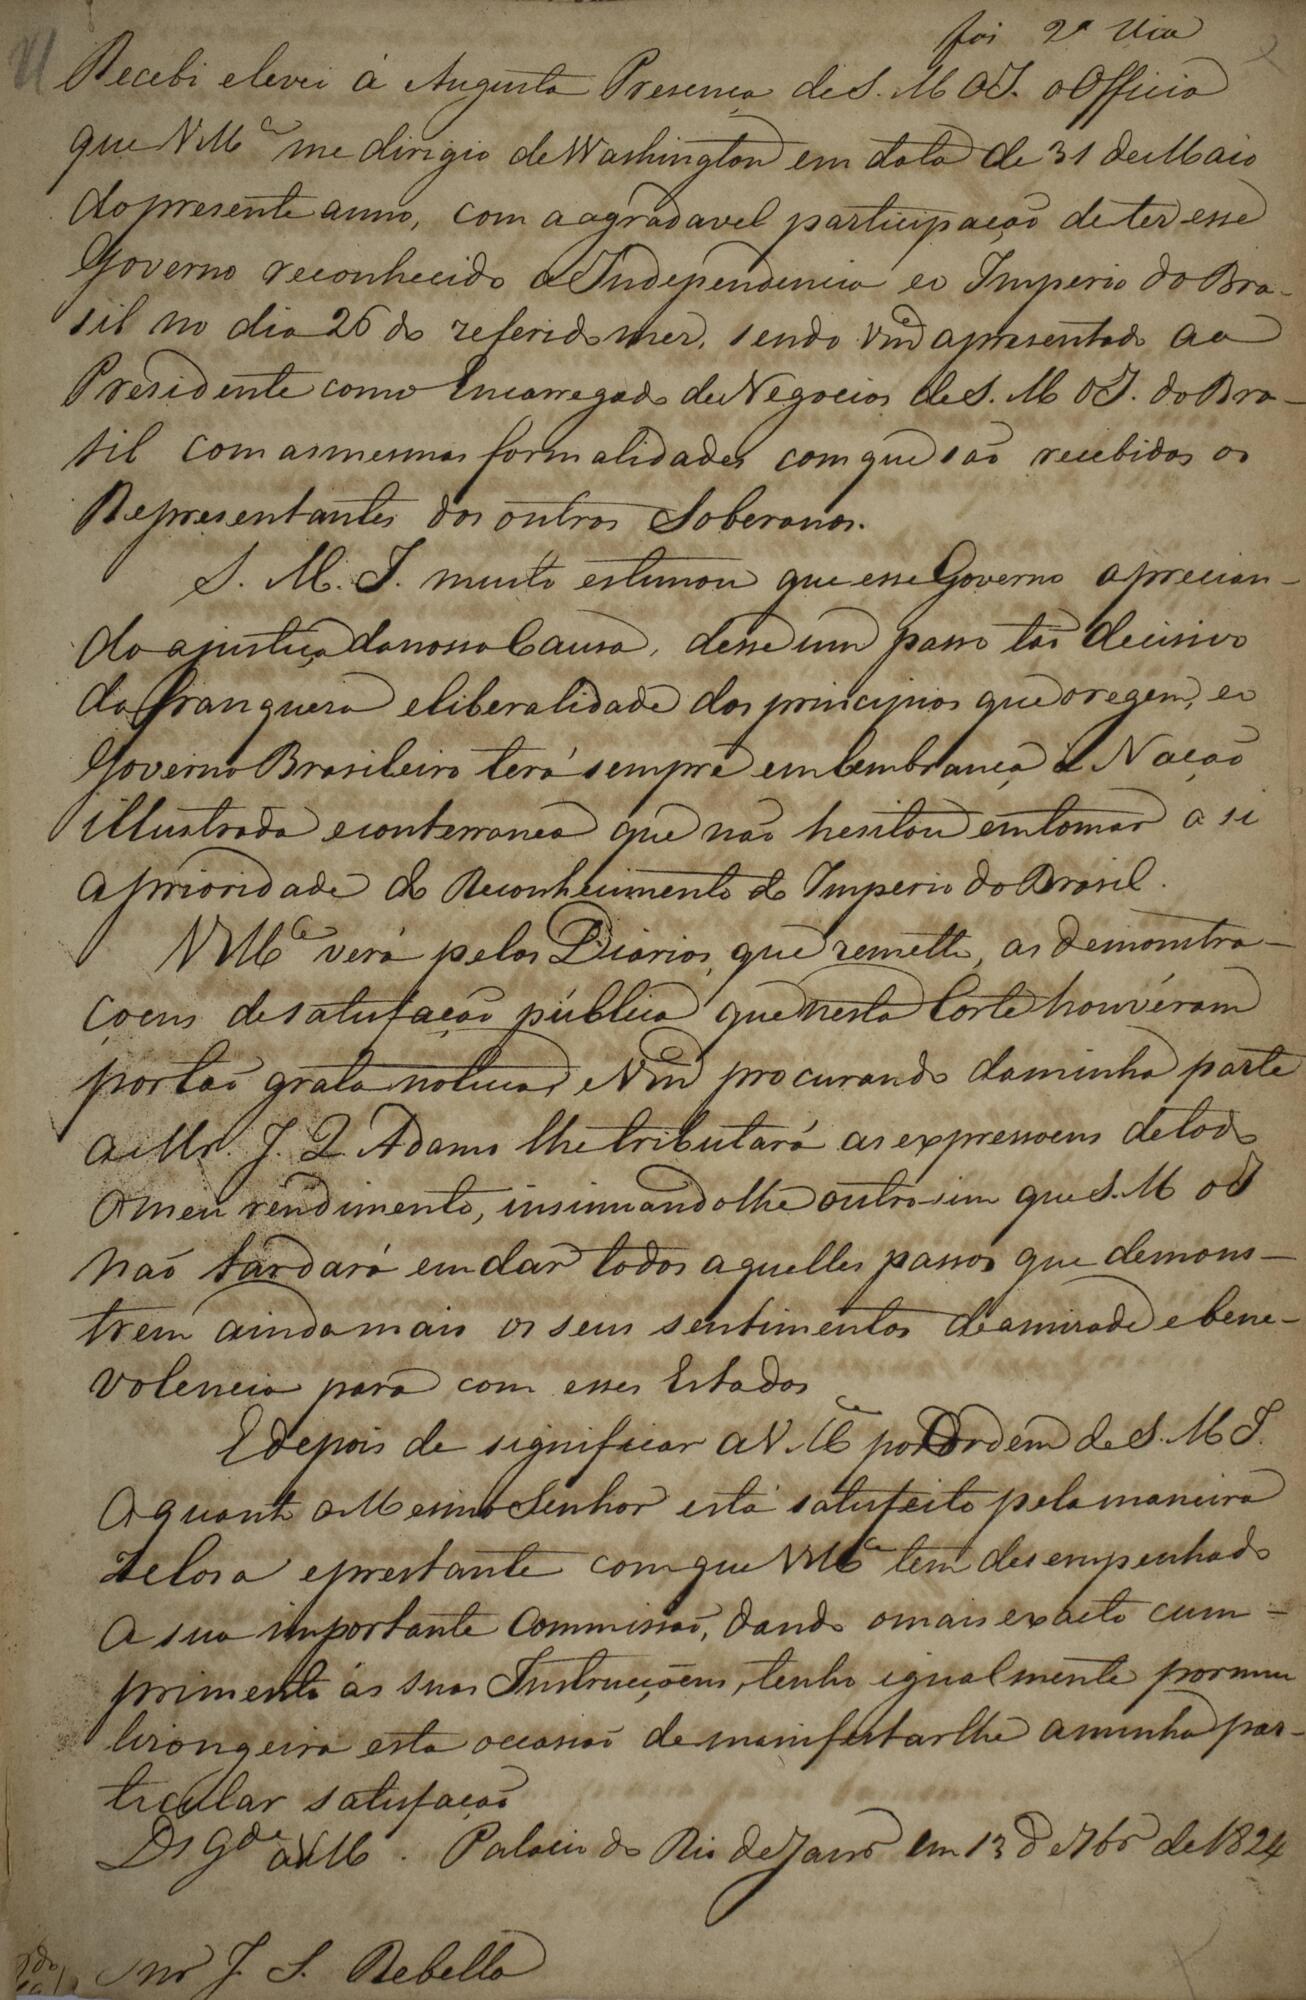 foi 2ª Via
Recebi e levei á Augusta Presença de S. M. O I. o Officio
que V Mce me dirigio de Washington em data de 31 de Maio
do presente anno, com a agradavel participação de ter esse
Governo reconhecido a Independencia e o Imperio do Bra-
sil no dia 26 do referido mez, sendo Vmce apresentado ao
Presidente como Encarregado de Negocios de S. M. O I. do Bra-
sil com as mesmas formalidades com que são recebidos os
Representantes dos outros Soberanos.
S. M. I. muito estimou que esse Governo aprecian-
do a justiça da nossa Causa, desse um passo tão decisivo
da franqueza e liberalidade dos principios que o regem, e o
Governo Brasileiro terá sempre em lembrança a Nação
illustrada e conterranea que não hesitou em tomar a si
a prioridade do Reconhecimento do Imperio do Brasil.
V Mce verá pelos Diarios, que remetto, as demonstra-
çoens de satisfação pública que nesta Corte houvéram
por tão grata noticia, e Vmce procurando da minha parte
a Mr. J. Q. Adams lhe tributará as expressoens de todo
o meu rendimento, insinuandolhe outro sim que S. M. O I
não tardará em dar todos aquelles passos que demons-
trem ainda mais os seus sentimentos de amizade e bene-
volencia para com esses Estados
E depois de significar a V. Mce por Ordem de S. M. I.
o quanto o Mesmo Senhor está satisfeito pela maneira
zelosa e prestante com que V Mce tem desempenhado
a sua importante Commissão, dando o mais exacto cum-
primento ás suas Instrucçoens, tenho igualmente por mui
lisongeira esta occasião de manifestarlhe a minha par-
ticular satisfação
Ds Gde a V M. Palacio do Rio de Janro em 13 de 7bro de 1824
Snr J. S. Rebello